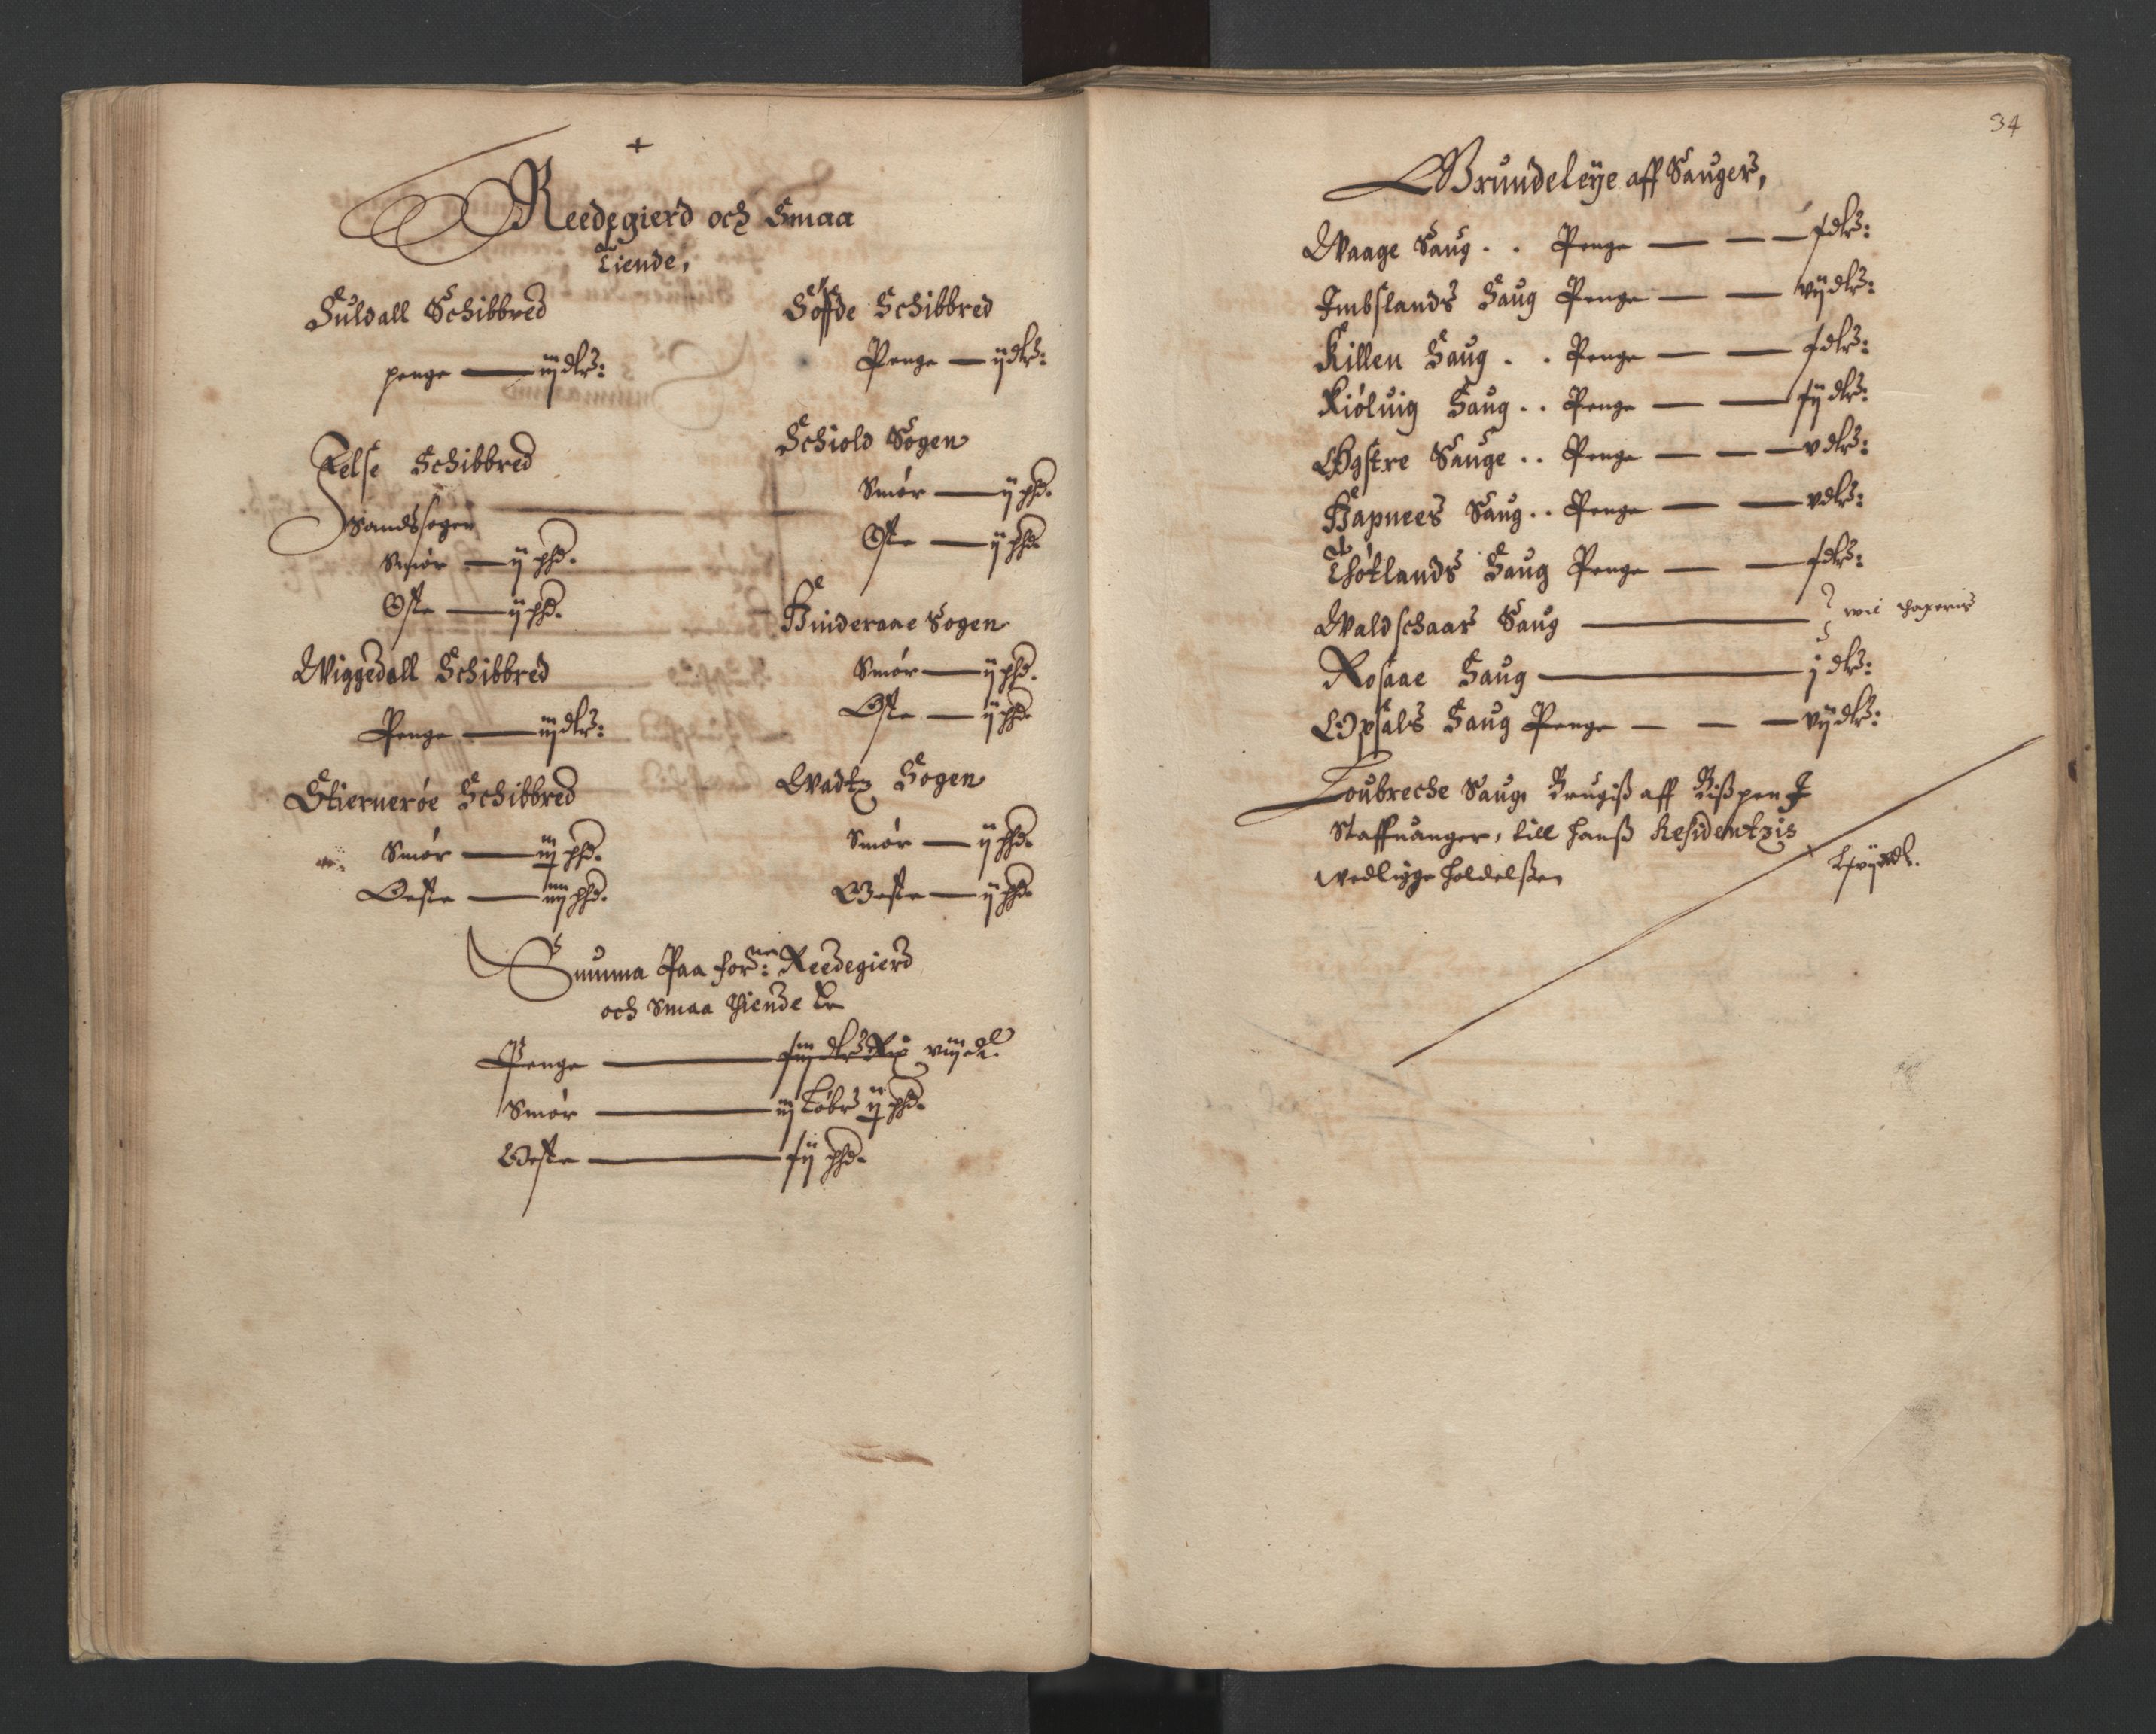 +
Reedegierd och Smaa
Tiende,
Suldall Schibbred
penge — iij dlr:
Jelse Schibbred
Sandssogen
Smør — ij phd.
Oste — ij phd.
Wiggedall Schibbred
Penge — iij dlr:
Stiernerøe Schibbred
Smør — iij phd.
Oeste — iiij phd.
Søffde Schibbred
Penge — ij dlr:
Schiold Sogen
Smør — ij phd.
Oste — ij phd.
Hinderaae Sogen
Smør — ij phd.
Oste — ij phd.
Wadtz Sogen
Smør — ij phd.
Oeste — ij phd.
Summa Paa forne: Reedegierd
och Smaa thiende Er
Penge — viij dl.
Smør — iij Løbr ij phd.
Oeste — xij phd.
34
Grundeleÿe aff Sauger,
Waage Saug . . Penge — — — x dlr:
Imbslands Saug Penge — — vij dlr:
Killen Saug . . Penge — — x dlr:
Kiøluig Saug . . Penge — — xij dlr:
Øgstre Sauge . . Penge — — — v dlr:
Hapnees Saug . . Penge — — v dlr:
Thøtlands Saug Penge — — x dlr:
Waldschaar Saug —
Rosaae Saug — j dlr:
Opsals Saug Penge — — — vij dlr:
Toubreche Saug Brugiß aff Bißpen I
Staffuanger, till hanß Residentzis
wedligge holdelßen